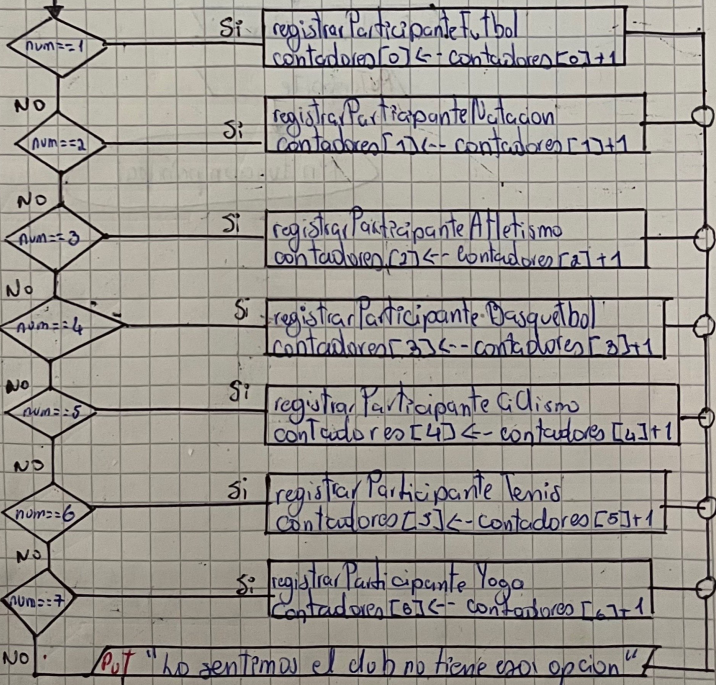 num==1
Si
registrarParticipanteFutbol
contadores[0]<-- contadores[0]+1
NO
num==2
Si
registrarParticipanteNatacion
contadores[1]<-- contadores[1]+1
NO
num==3
Si
registrarParticipanteAtletismo
contadores[2]<-- contadores[2]+1
NO
num==4
Si
registrarParticipanteBasquetbol
contadores[3]<-- contadores[3]+1
NO
num==5
Si
registrarParticipanteCiclismo
contadores[4]<-- contadores[4]+1
NO
num==6
Si
registrarParticipanteTenis
contadores[5]<-- contadores[5]+1
NO
num==7
Si
registrarParticipanteYoga
contadores[6]<-- contadores[6]+1
NO
Put "Lo sentimos el club no tiene esa opcion"